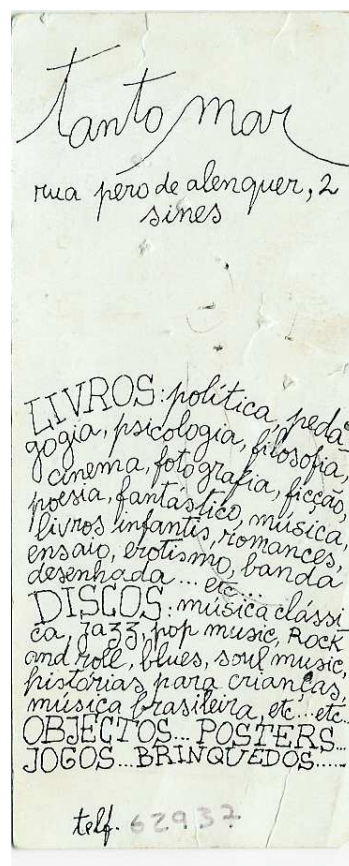 tanto mar
rua pero de alenquer, 2
sines
LIVROS: política, peda-
gogia, psicologia, filosofia,
cinema, fotografia, ficção,
poesia, fantástico, música,
livros infantis, romances,
ensaio, erotismo, banda
desenhada... etc...
DISCOS: música clássi-
ca, jazz, pop music, Rock
and roll, blues, soul music,
histórias para crianças,
música brasileira, etc... etc...
OBJECTOS... POSTERS...
JOGOS... BRINQUEDOS.....
telf. 62937